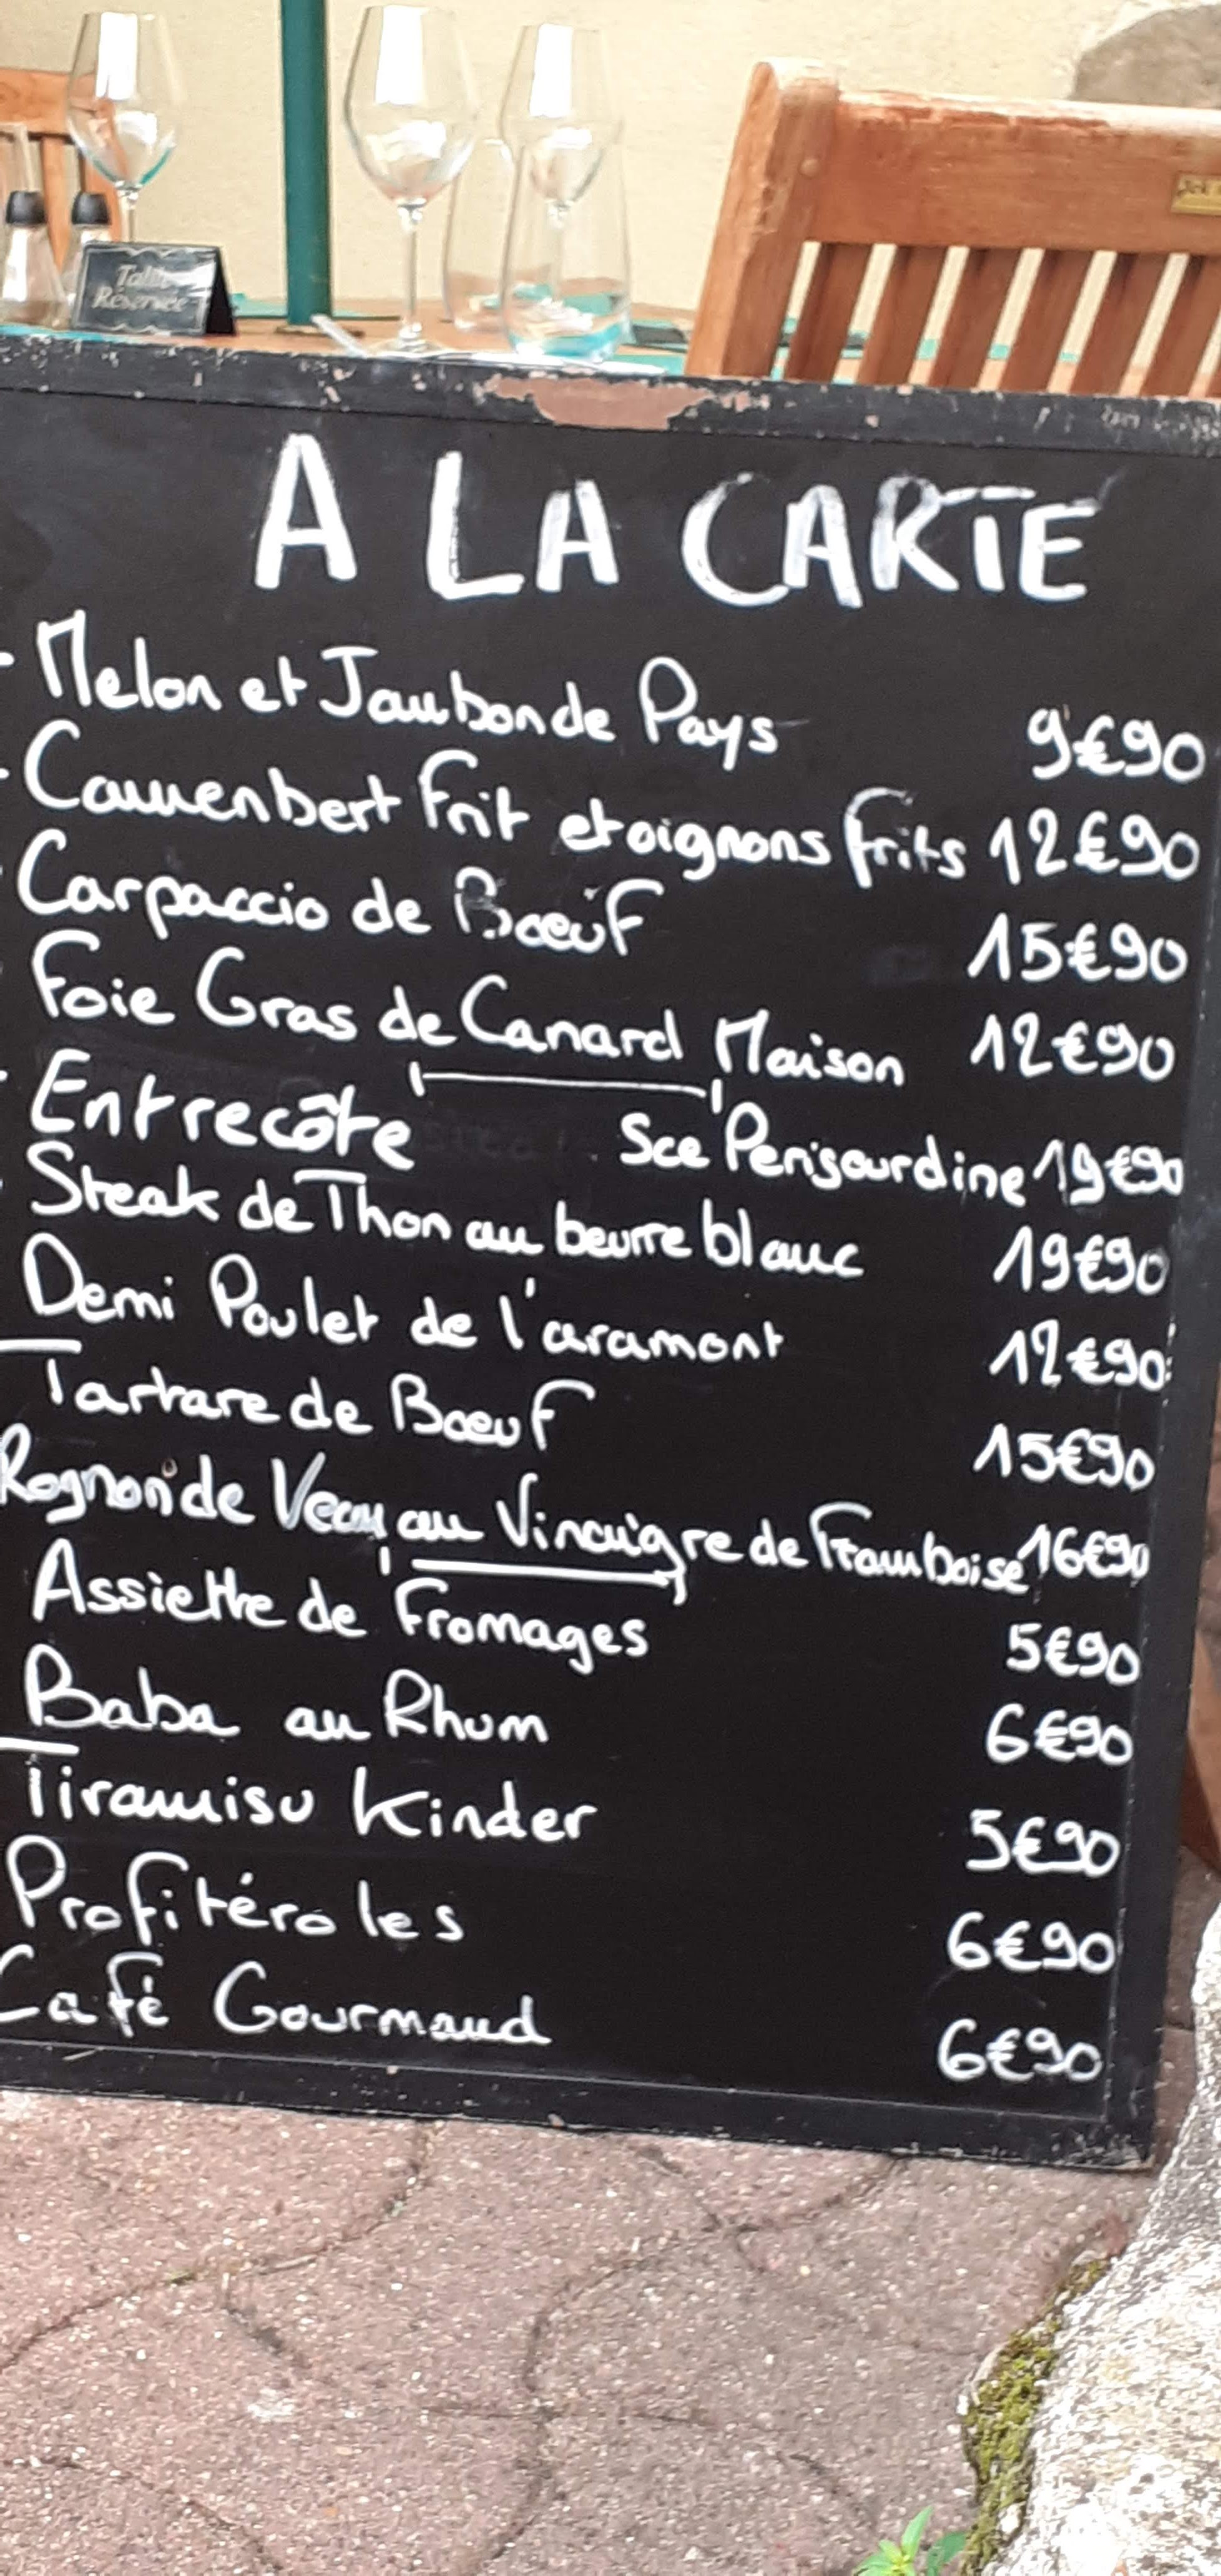 Table
Réservée
A LA CARTE
- Melon et Jambon de Pays 9€90
- Camembert Frit et oignons frits 12€90
Carpaccio de Bœuf 15€90
Foie Gras de Canard Maison 12€90
- Entrecôte Sce Perigourdine 19€90
Steak de Thon au beurre blanc 19€90
Demi Poulet de l'aramont 12€90
Tartare de Bœuf 15€90
Rognon de Veau au Vinaigre de Framboise 16€90
Assiette de Fromages 5€90
Baba au Rhum 6€90
Tiramisu Kinder 5€90
Profitéroles 6€90
Café Gourmand 6€90